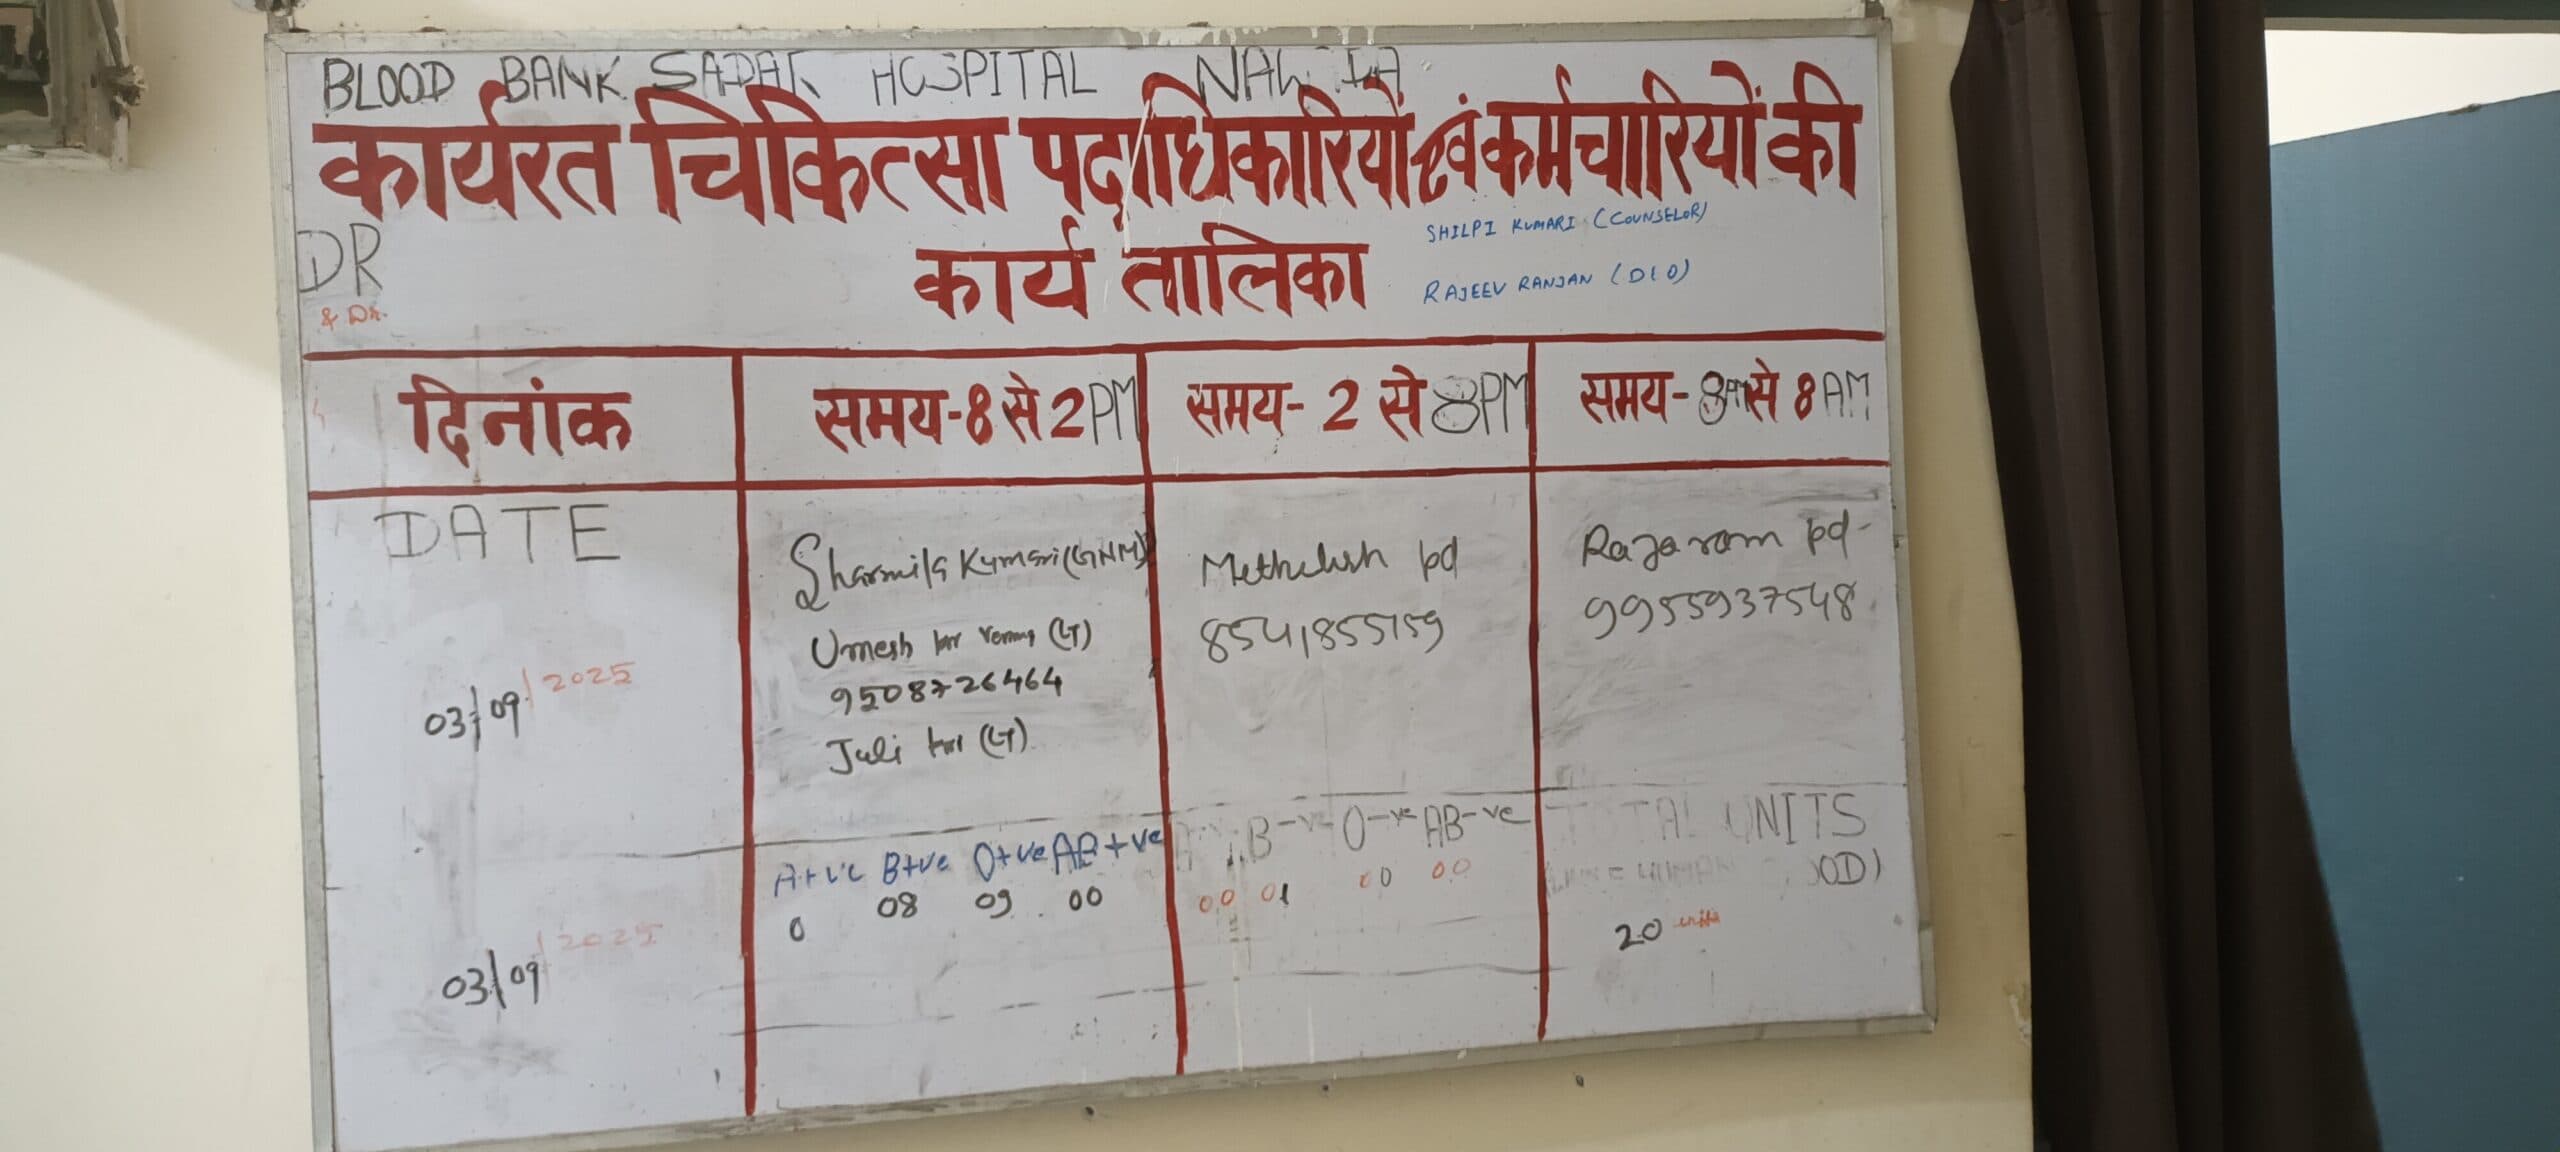 BLOOD BANK SADAR HOSPITAL
कार्यरत चिकित्सा पदाधिकारियों एवं कर्मचारियों की
कार्य तालिका
SHILPI KUMARI (COUNSELOR)
RAJEEV RANJAN (DEO)
DR
& Dr.
दिनांक
समय-8 से 2PM
समय- 2 से 8PM
समय- 8 से 8 AM
DATE
03/09/2025
Sharmila Kumari (GNM)
Umesh kr verma (LT)
9508726464
Juli kri (LT)
Methelesh pd
8541855159
Rajaram pd-
9955937548
A+ve B+ve O+ve AB+ve
0 08 09 00
B-ve O-ve AB-ve
00 01 00 00
TOTAL UNITS
20 units
03/09/2025